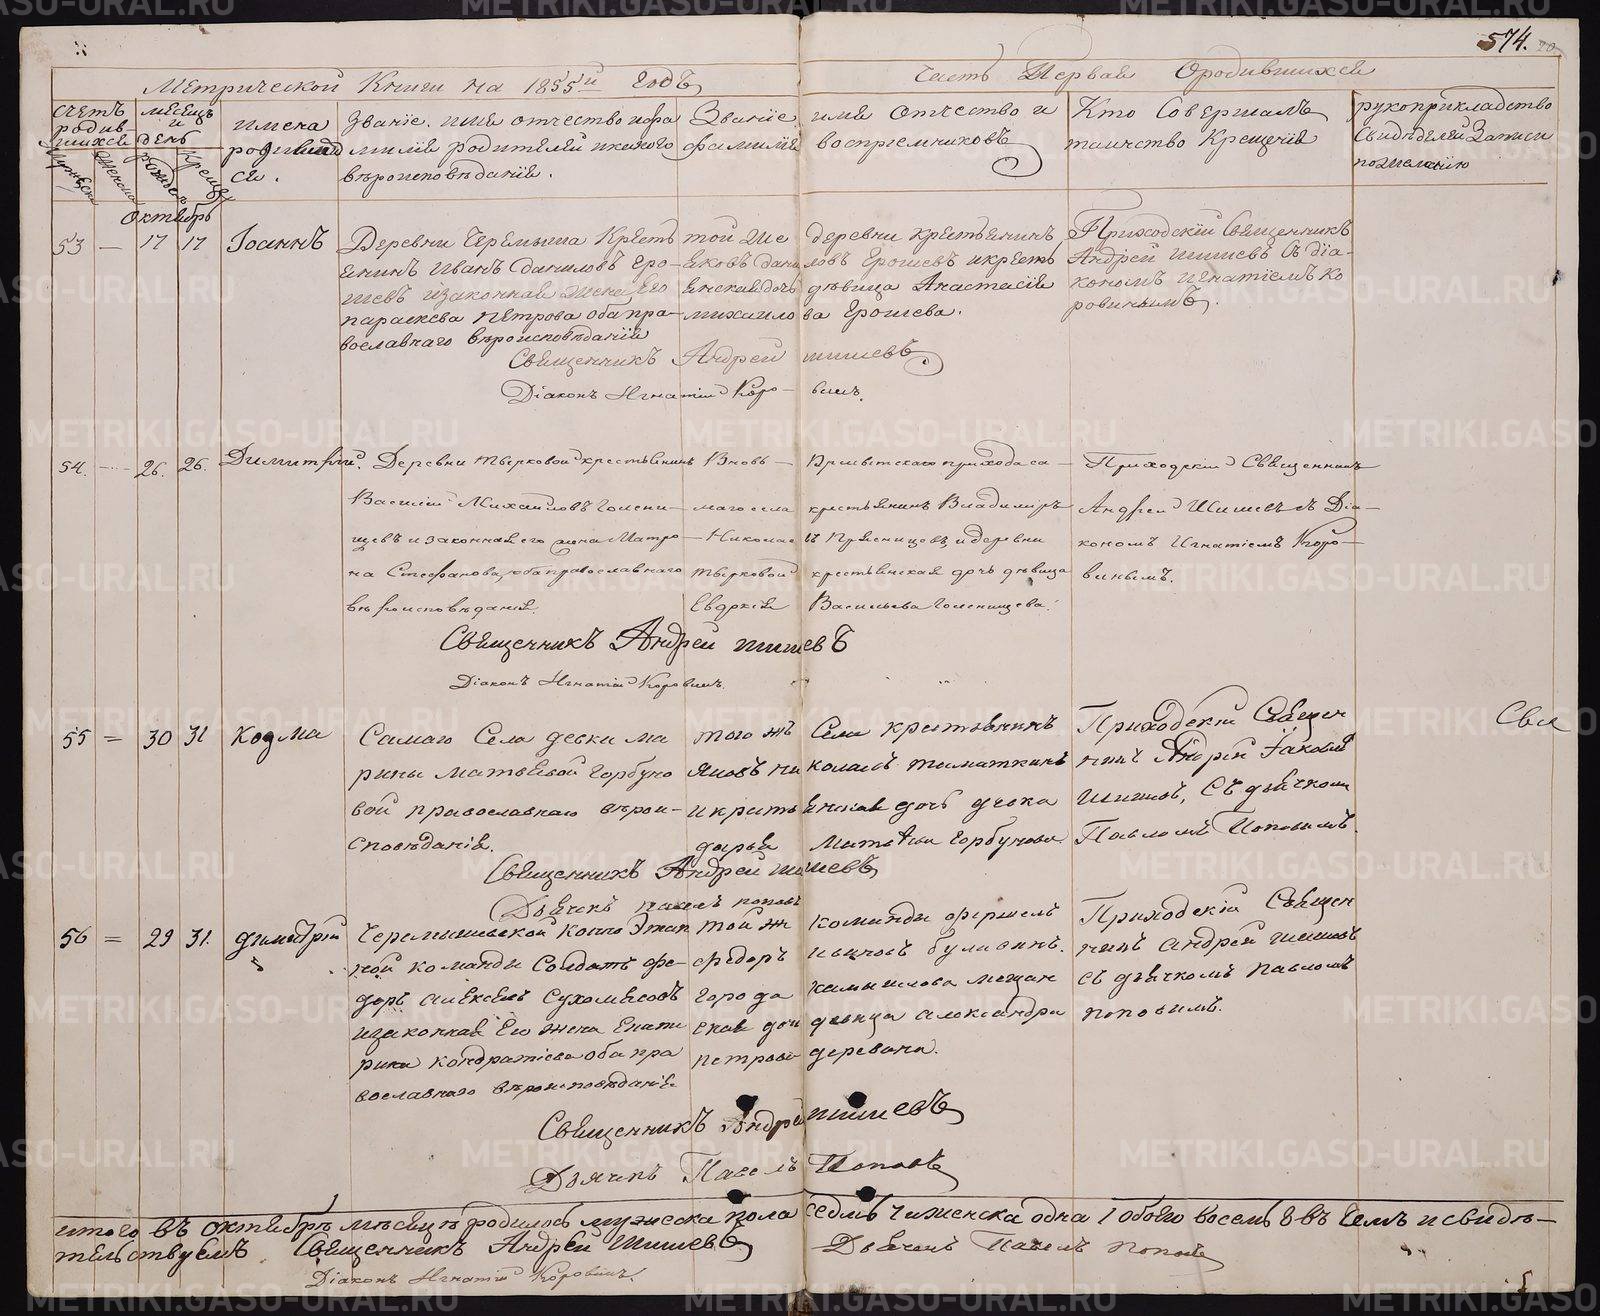 574.
Метрической Книги на 1855й годъ
Часть Первая О родившихся
Счетъ родившихся
Мужеска
Женска
Месяцъ и день
рожден.
Крещен.
имена родившихся.
Званіе, имя отчество и фамилія родителей и какого вѣроисповѣданія.
Званіе имя отчество и фамилія воспріемниковъ
Кто Совершалъ таинство Крещенія
рукоприкладство Свидѣтелей Записи по желанію
Октябрь
53 — 17 17 Іоаннъ
Деревни Черемыша Кресть
янинъ Иванъ Даниловъ Еро-
шевъ и законная жена Его
параскева Петрова оба пра-
вославнаго вѣроисповѣданія
той же деревни крестьянинъ
Яковъ Даниловъ Ерошевъ и кресть
янская дочь дѣвица Анастасія
михайлова Ерошева.
Приходскій Священникъ
Андрей шишевъ съ діа-
кономъ Игнатіемъ Ко
ровинымъ.
Священникъ Андрей шишевъ
Діаконъ Игнатій Коро-винъ.
54. — 26. 26. Димитрій.
Деревни Тверковой крестьянинъ
Василій Михайловъ Голени-
щевъ и законная его жена Матро-
на Стефанова, оба православнаго
вѣроисповѣданія.
Вновь — прихода са-
маго села крестьянинъ Владимиръ
Николаевъ Пряницовъ, и деревни
тверковой крестьянская дочь дѣвица
Евдокія Васильева Голенищева.
Приходскій Священникъ
Андрей Шишевъ съ Діа-
кономъ Игнатіемъ Коро-
винымъ.
Священникъ Андрей шишевъ
Діаконъ Игнатій Коровинъ.
55 = 30 31 Козма
Самаго Села девки ма
рины матвѣевой Горбуно
вой православнаго вѣрои-
сповѣданія.
того жъ Села крестьянинъ
Яковъ николаевъ
и крестьянская дочь девка
дарья Матвѣева Горбунова
Приходскій Священ
никъ Андрей Іаковлевъ
Шишевъ, Съ дьячкомъ
Павломъ Поповымъ.
Священникъ Андрей шишевъ
Дьячекъ павелъ поповъ
56 = 29 31. димитрій
Черемышевской Конно Этап
ной команды Солдатъ фе-
доръ алексѣевъ Сухомесовъ
и законная Его жена Екате
рина кондратіева оба пра
вославнаго вѣроисповѣданія
той же команды
федоръ ивановъ
города камышлова мещан
ская дочь девица александра
петрова
Приходскій Священ
никъ андрей шишевъ
съ дьячкомъ павломъ
поповымъ.
Священникъ Андрей шишевъ
Дьячекъ Павелъ Поповъ
Сви
итого въ октябрѣ мѣсяцѣ родилось мужеска пола седмь 7 и женска одна 1 обоего восемь 8 въ чемъ и свидѣ-
тельствуемъ Священникъ Андрей Шишевъ Дьячекъ Павелъ поповъ
Діаконъ Игнатій Коровинъ.
METRIKI.GASO-URAL.RU